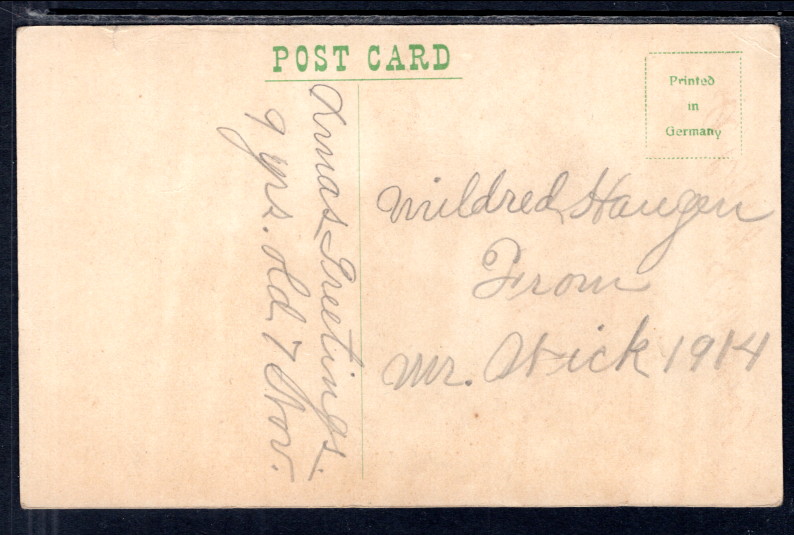 POST CARD
Printed
in
Germany
Xmas Greetings.
9 yrs. old 17 Nov.
Mildred Haugen
From
Mr. Wick 1914